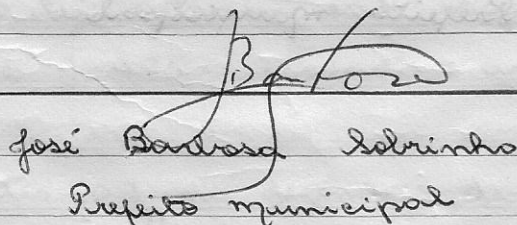 José Barbosa Sobrinho
Prefeito municipal